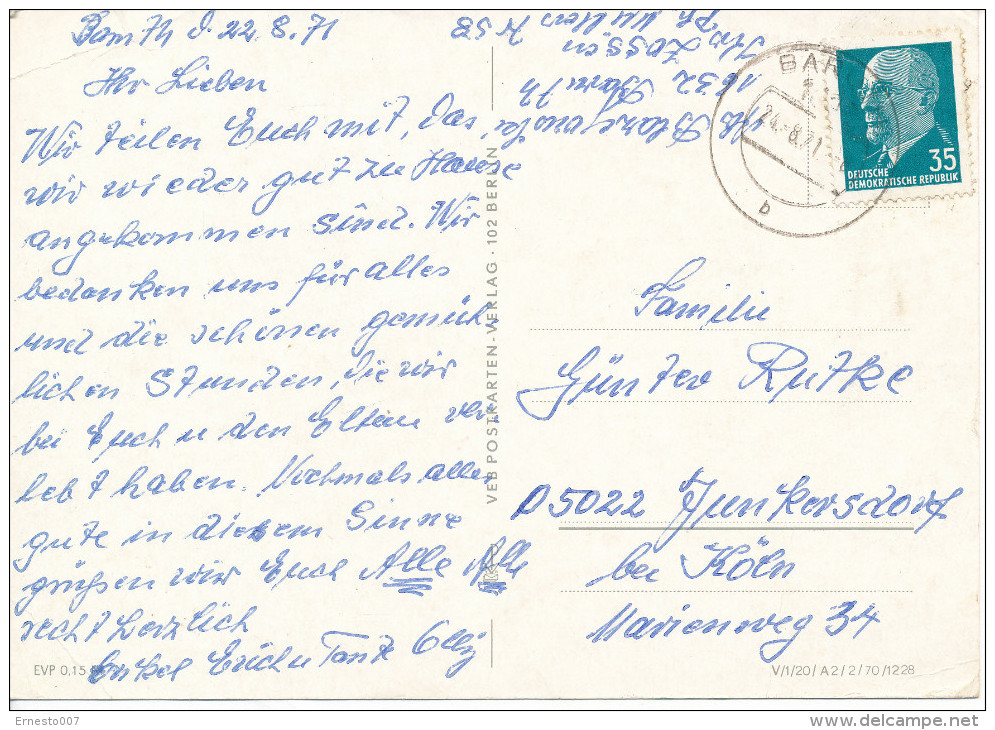 Ihr Lieben
Wir teilen Euch mit, das
wir wieder gut zu Hause
angekommen sind. Wir
bedanken uns für alles
und die schönen gemüt-
lichen Stunden, die wir
bei Euch u den Eltern ver
lebt haben. Nochmals alles
gute in diesem Sinne
grüßen wir Euch Alle Alle
recht herzlich
Onkel Erich u Tante
22.8.71
1632
VEB POSTKARTEN-VERLAG · 102 BERLIN
BAR
24.-8.71
b
35
DEUTSCHE
DEMOKRATISCHE REPUBLIK
Familie
Günter Rutke
D 5022 Junkersdorf
bei Köln
Marienweg 34
EVP 0,15
V/1/20/A2/2/70/1228
Ernesto007
delcampe.net